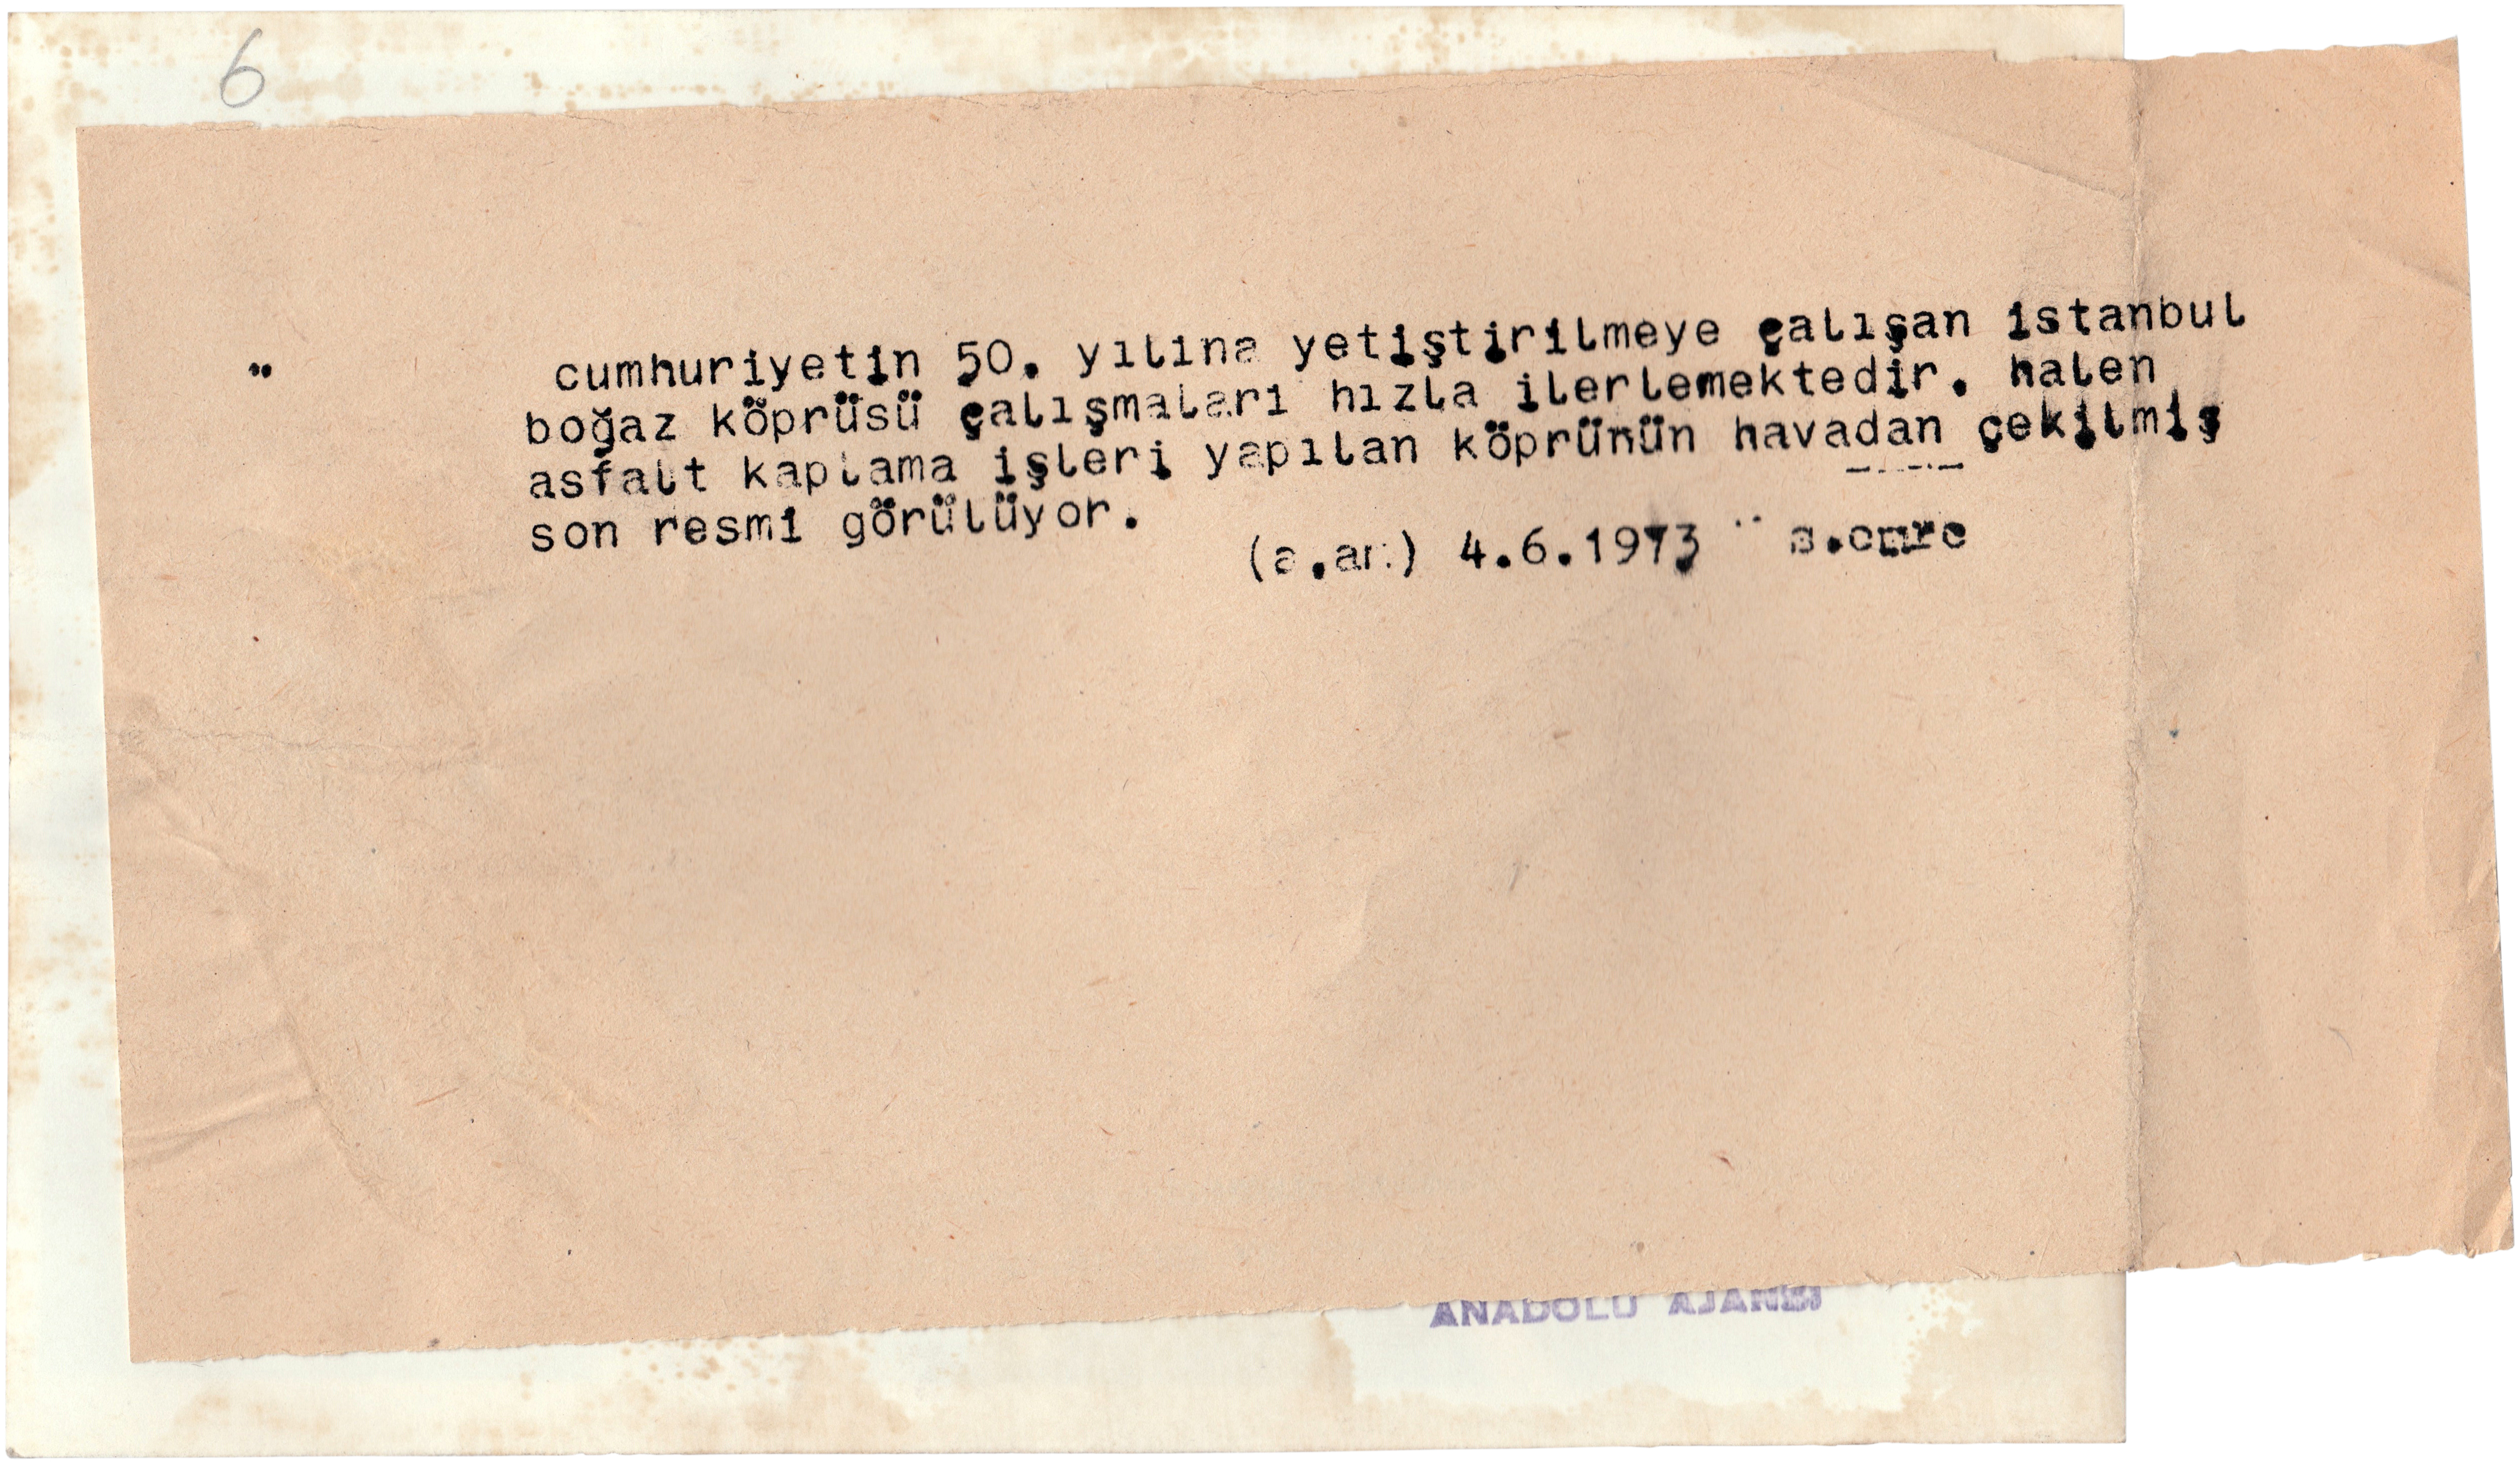 6
" cumhuriyetin 50. yılına yetiştirilmeye çalışan istanbul
boğaz köprüsü çalışmaları hızla ilerlemektedir. halen
asfalt kaplama işleri yapılan köprünün havadan çekilmiş
son resmi görülüyor.
(a.an) 4.6.1973 " s.emre
ANADOLU AJANSI